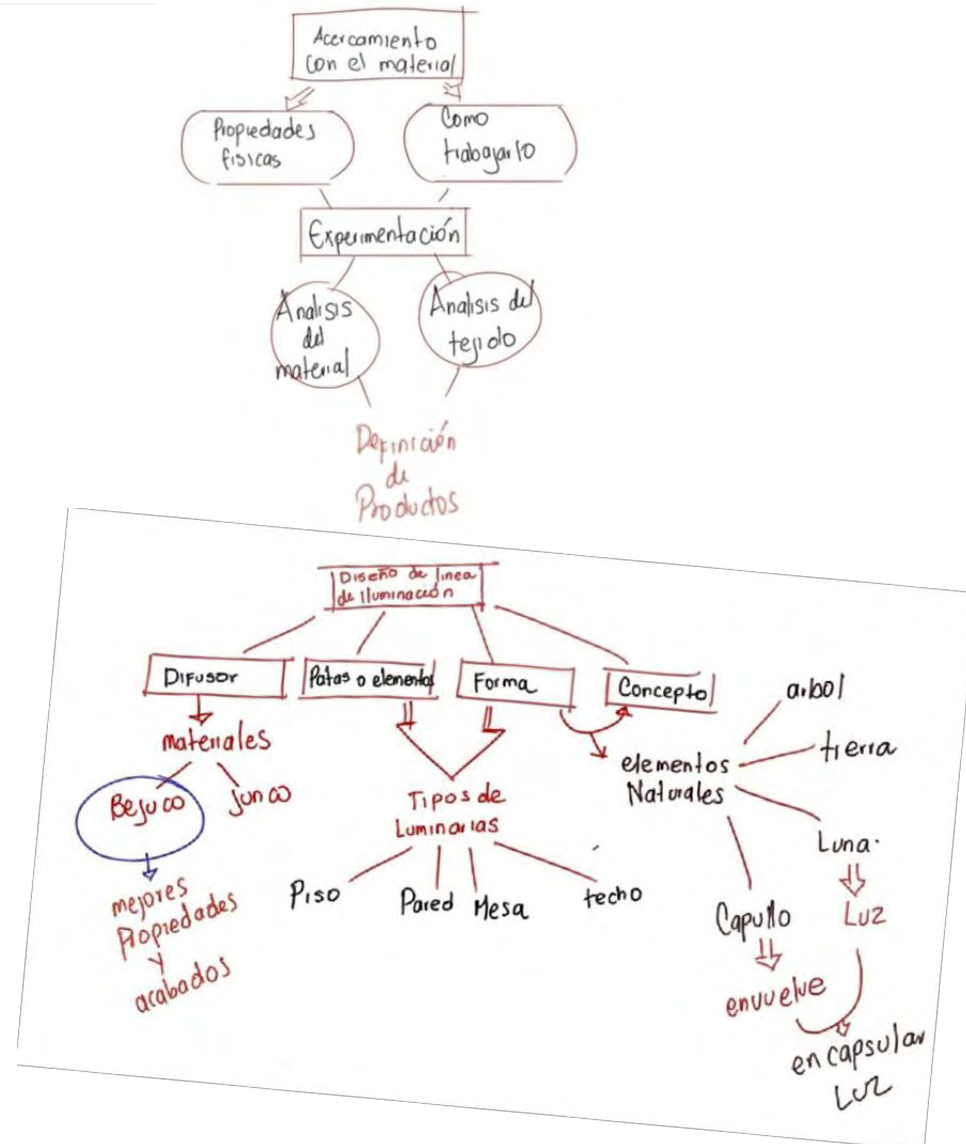 Acercamiento
con el material
Propiedades
fisicas
Como
trabajarlo
Experimentación
Analisis
del
material
Analisis del
tejido
Definición
de
Productos
Diseño de linea
de iluminación
Difusor
Patas o elementos
Forma
Concepto
materiales
Bejuco
junco
mejores
Propiedades
y
acabados
Tipos de
Luminarias
Piso
Pared
Mesa
techo
elementos
Naturales
arbol
tierra
Luna.
Luz
Capullo
envuelve
encapsular
Luz